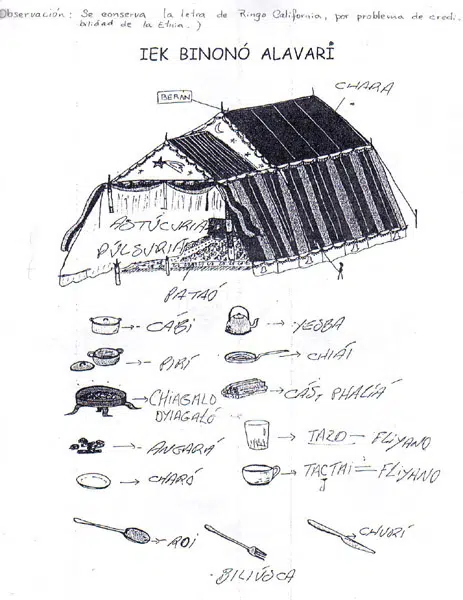 Observación: Se conserva la letra de Ringo California, por problema de credi.
bilidad de la Etnia.)
IEK BINONÓ ALAVARÍ
BERAN
CHARA
ASTÚCURIA
PÚLSURIA
PATAÓ
CÁBI
YESBA
PIRÍ
CHIAÍ
CHIAGALO
DYIAGALÓ
CÁST PHALIÁ
ANGARÁ
TAZO = FLIYANO
CHARÓ
TACTAI = FLIYANO
ROI
CHURÍ
BILIÚSCA